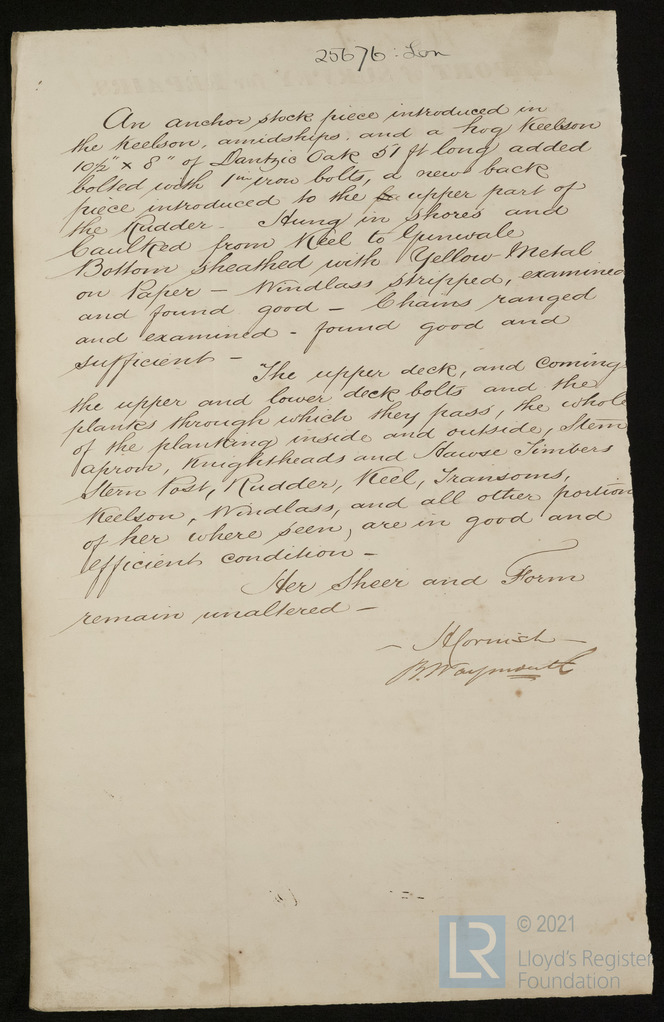 25676: Lon
An anchor stock piece introduced in
the Keelson, amidships, and a hog Keelson
10½" x 8" of Dantzic Oak 51 ft long added
bolted with 1 in iron bolts, a new back
piece introduced to the upper part of
the Rudder - Hung in shores and
Caulked from Keel to Gunwale
Bottom sheathed with Yellow Metal
on Paper - Windlass stripped, examined
and found good - Chains ranged
and examined - found good and
sufficient -
The upper deck, and coming
the upper and lower deck bolts and the
planks through which they pass, the whole
of the planking inside and outside, Stem
apron, Knightheads and Hawse Timbers
Stern Post, Rudder, Keel, Transoms,
Keelson, Windlass, and all other portion
of her where seen, are in good and
efficient condition -
Her Sheer and Form
remain unaltered -
- H Cornish -
B. Waymouth
LR
© 2021
Lloyd's Register
Foundation